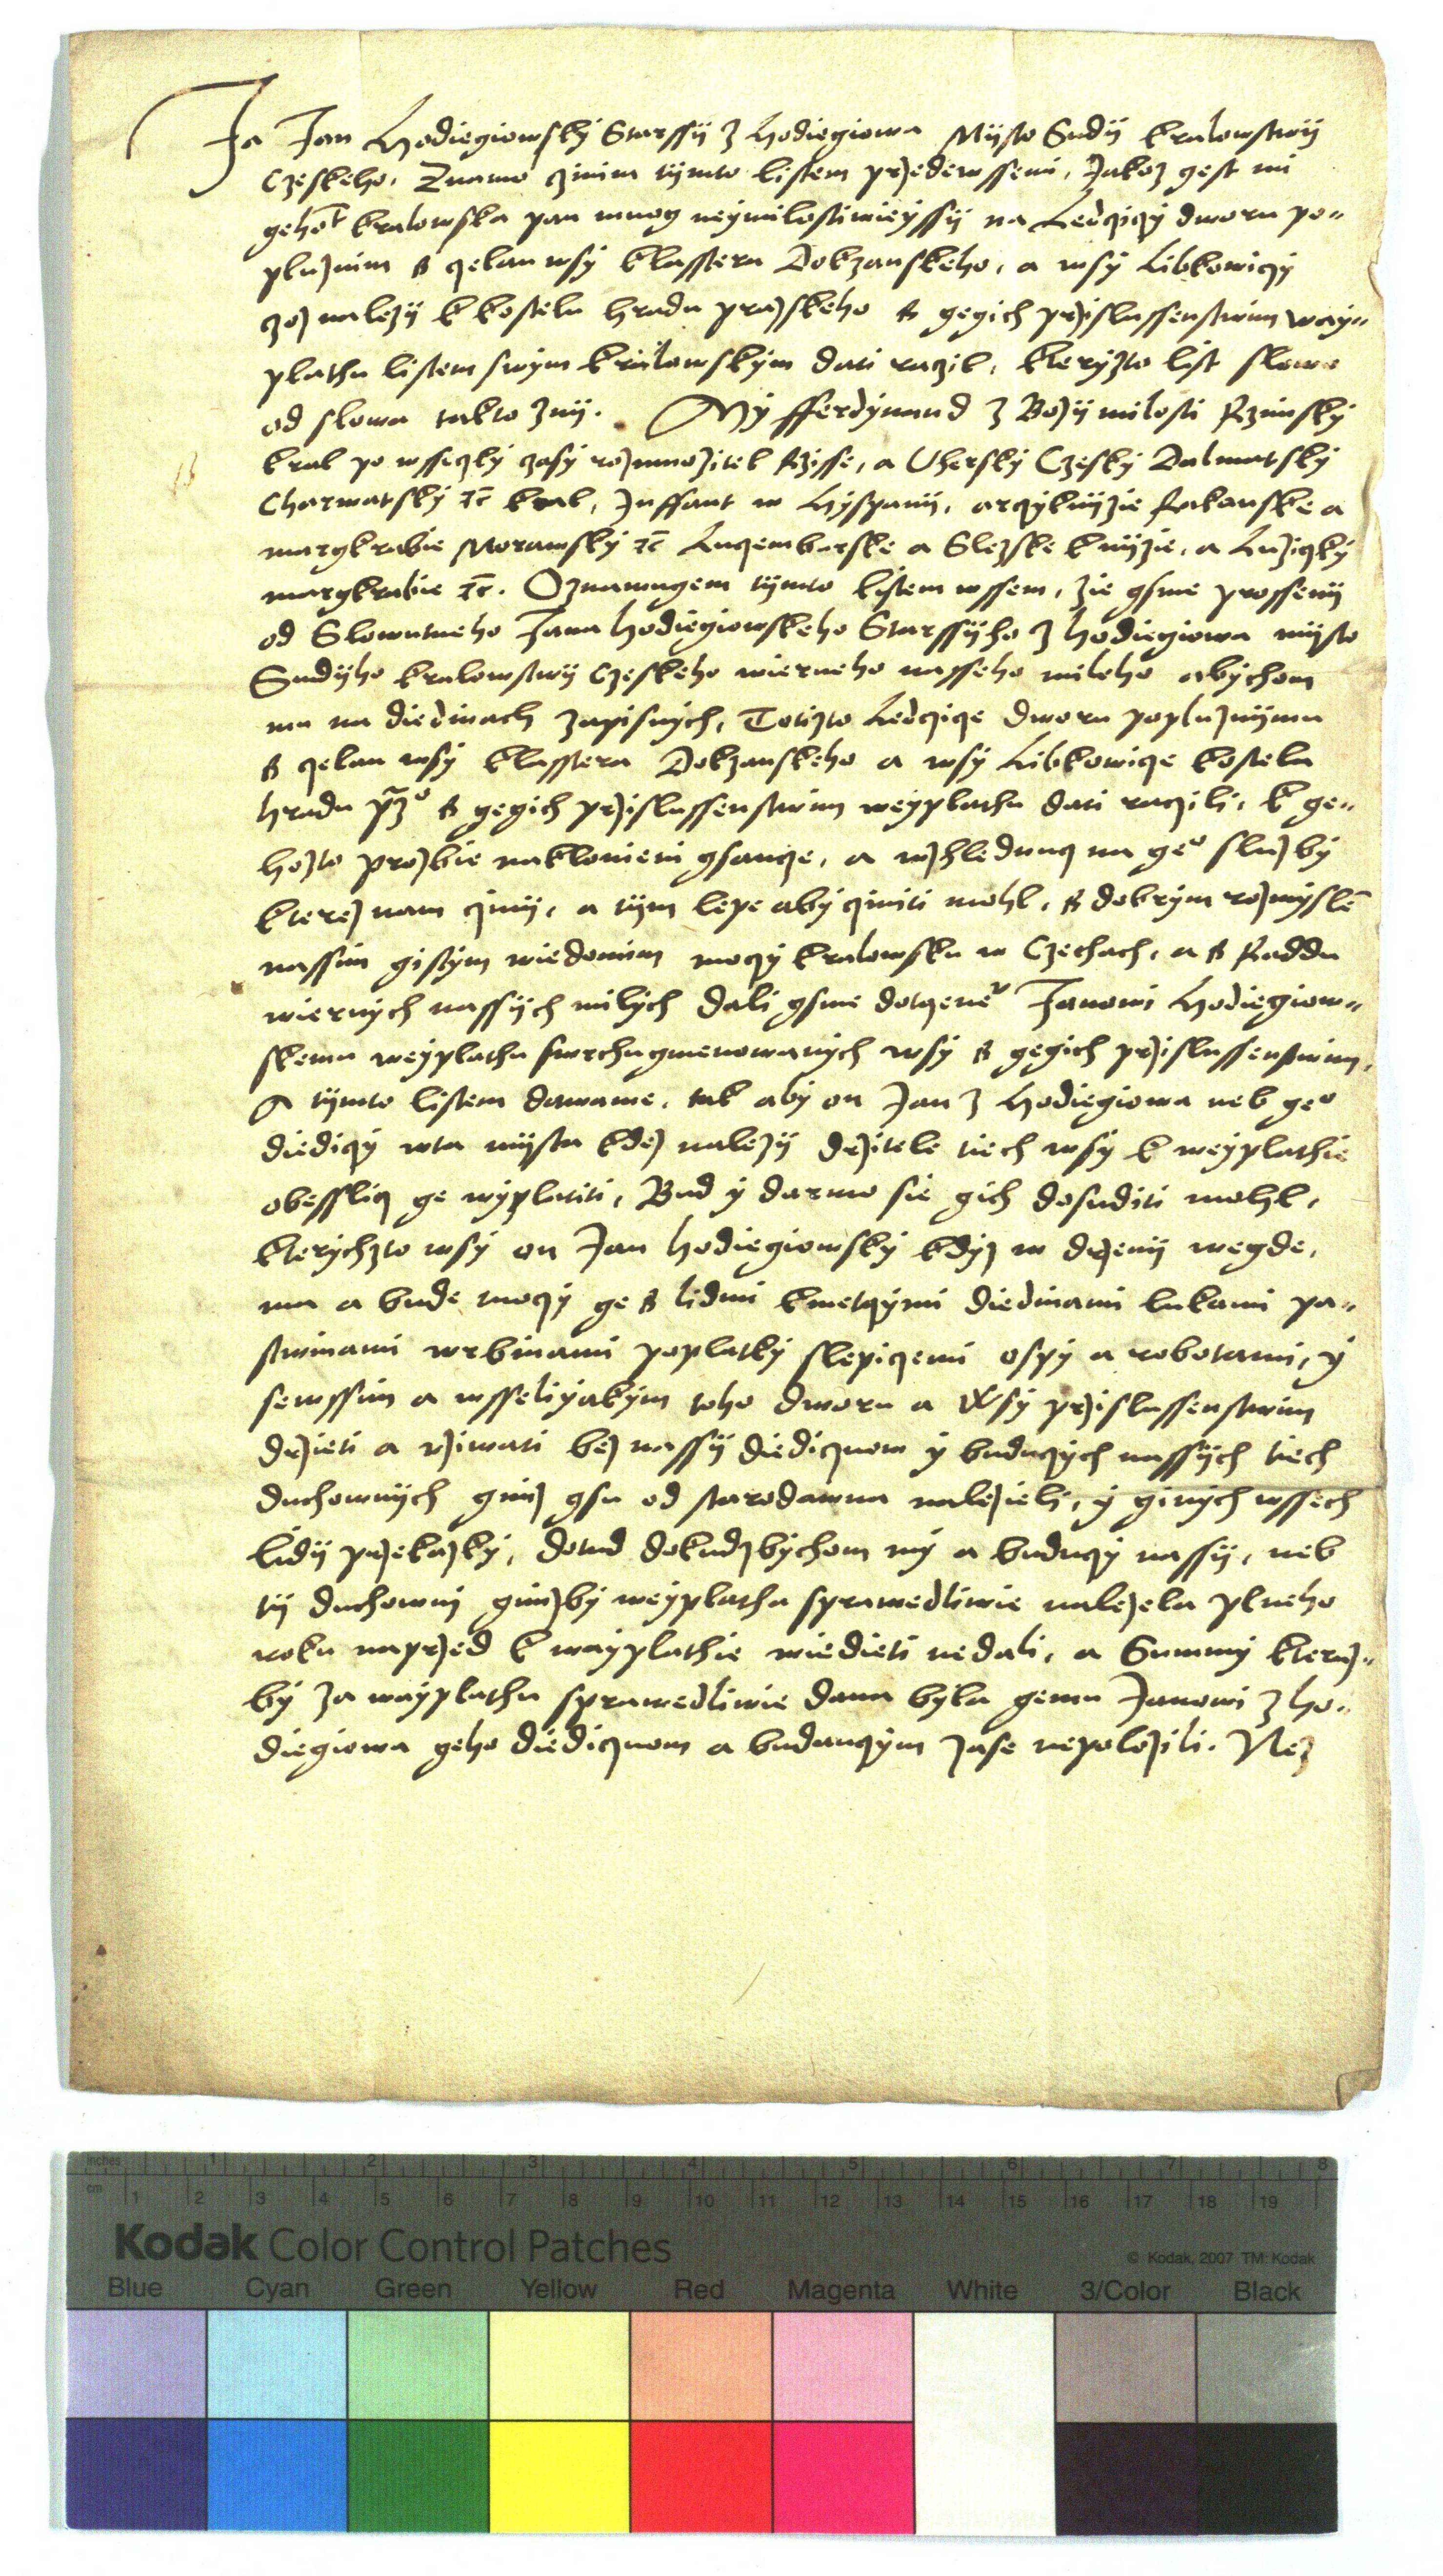 Ja Jan Hodiegiowsky Starssij z Hodiegiowa Mijsto Sudij kralowstwij
Czeskeho, Znamo czinim tijmto listem przedewssemi, Jakoz gest mi
geho mt kralowska pan muog neymilostiwieyssij na Ledczyczy dworu po„
pluznim s czelau wsy klasstera Dokzanskeho, a wsy Libkowiczy
czoz nalezij k kostelu hradu prazskeho s gegich przislussenstwim way„
plathu listem swym kralowskym dati raczil, kteryzto list slowo
od slowa takto znij. My fferdynand z Bozij milosti Rzimsky
kral po wsseczky czasy rozmnozitel Rzisse, a Uhersky Czesky Dalmatsky
Charwatsky etc kral, Inffant w Hyspanij, arczyknijzie Rakauske a
margkrabie Morawsky etc Luczemburske a Slezske knijzie, a Luziczky
margkrabie etc. Oznamugem tijmto listem wssem, zie gsme prosseni
od Slowutneho Jana Hodiegiowskeho Starssijho z Hodiegiowa mijsto
Sudijho kralowstwij Czeskeho wierneho nasseho mileho abychom
mu na diedinach zapisnych, Totizto Ledczicze dworu popluznijmu
s czelau wsy klasstera Dokzanskeho a wsy Libkowicze kostela
hradu prazo s gegich przislussenstwim weyplathu dati raczili, k ge„
hozto prozbie nakloneni gsaucze, a wzhledaucz na geo sluzby
kterez nam czinij, a tijm lepe aby cziniti mohl, s dobrym rozmyslem
nassim gistym wiedomim moczy kralowsku w Czechach, a s Raddu
wiernych nassijch milych dali gsme dotczenemu Janowi Hodiegiow„
skemu weyplathu swrchugmenowanych wsy s gegich przislussenstwim,
A tijmto listem dawame, tak aby on Jan z Hodiegiowa neb geo
diediczy wta mijsta kdez nalezij drzitele tiech wsy k weyplathie
obesslicz ge wyplatiti, Bud y darmo sie gich dosuditi mohl,
kterychzto wsy on Jan Hodiegiowsky kdyz w drzenij wegde,
ma a bude moczy ge s lidmi kmetczymi diedinami lukami pa„
stwinami wrbinami poplatky slepiczemi ospy a robotami, y
sewssim a wsselijakym toho dworu a Wsy przislussenstwim
drzieti a vziwati bez nassij diediczuow y buduczych nassijch tiech
duchownych gimz gsu od starodawna nalezieli, y ginych wssech
lidij przekazky, dotud dokudzbychom my a buduczy nassij, neb
tij duchowni gimzby weyplatha sprawedliwie nalezela plneho
roku naprzed k wayplathie wiedieti nedali, a Summy kteraz„
by za wayplathu sprawedliwie dana byla gemu Janowi z Ho„
diegiowa geho diediczuom a budauczym zase nepolozili. Nez